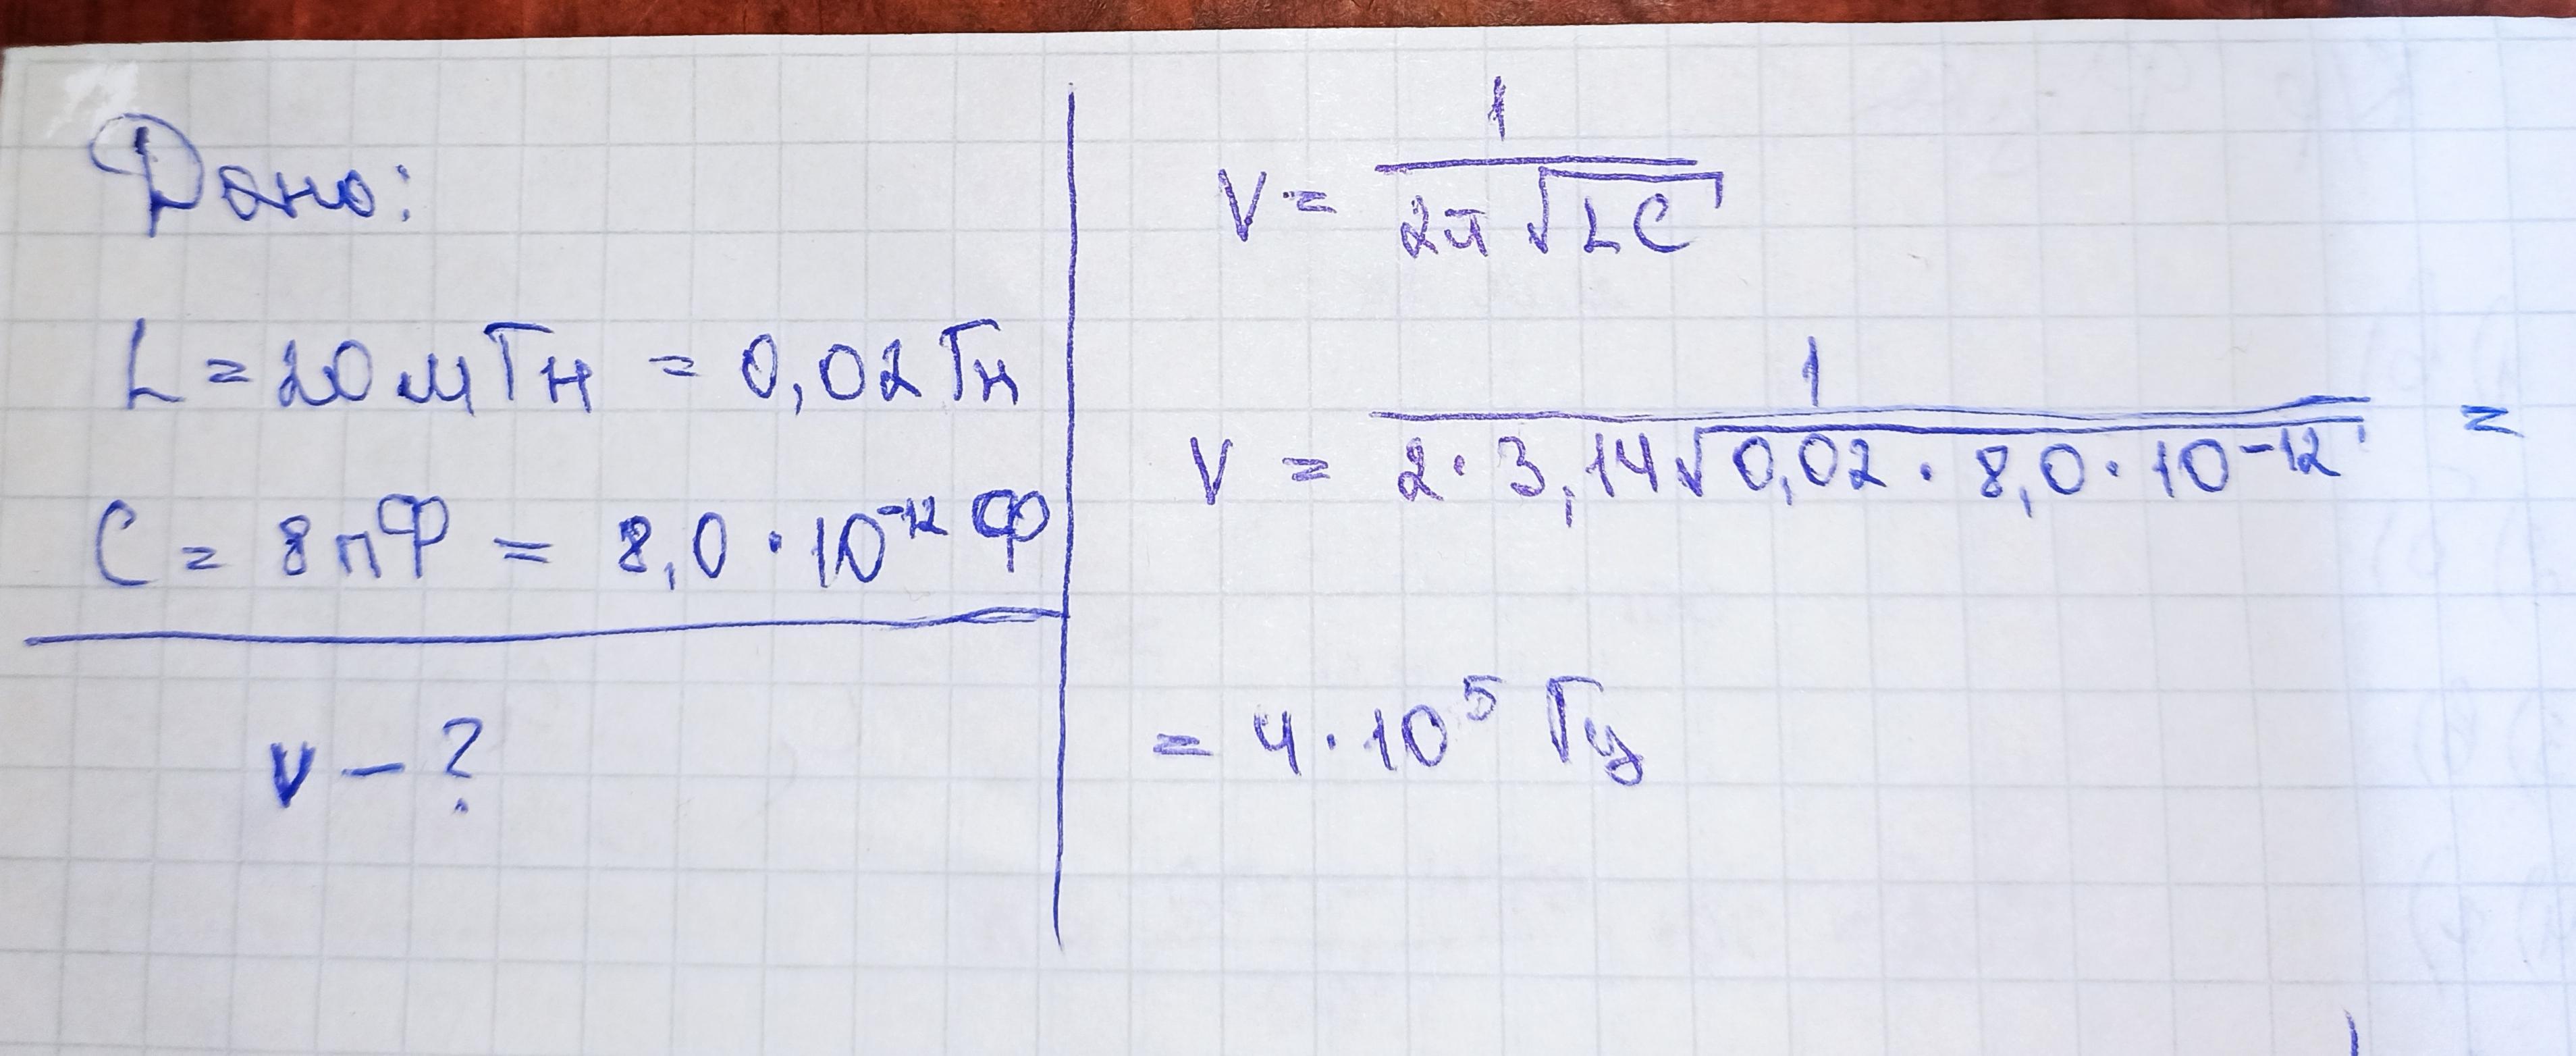 Дано:
L = 20 мГн = 0,02 Гн
C = 8 пФ = 8,0 · 10⁻¹² Ф
ν – ?
ν = 1 / 2π √LC
ν = 1 / 2 · 3,14 √0,02 · 8,0 · 10⁻¹² =
= 4 · 10⁵ Гц